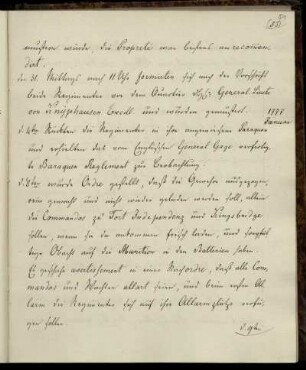 (55)
munstrirt würde, die Propreté war bestens anrecommandirt.
die 31. Mittags nach 11 Uhr formirten sich nach der Vorschrift
beide Regimenter vor dem Quartier General Lieut:
von Knyphausen Excell. und wurden gemustert.
1777
Januar
Rückten die Regimenter in ihre angewiesene Baraquen
und erhielten das vom Englischen General Gage verfertig-
te Baraquen Reglement zur Beobachtung.
wurde Ordre gestellt, daß die Gewehre ausgezogen,
rein gemacht und nicht wieder geladen werden soll, allein
die Commandos zu Fort Independenz und Kingsbridge
sollen, wenn sie da ankommen frisch laden, und sorgfäl-
tige Obacht auf die Munition in den Batterien haben.
Es geschahe avertissement in einer Nachordre, daß alle Com-
mandos und Wachten allart seien, und beim ersten Al-
larm die Regimenter sich auf ihre Allarmplätze verfü-
gen sollen.